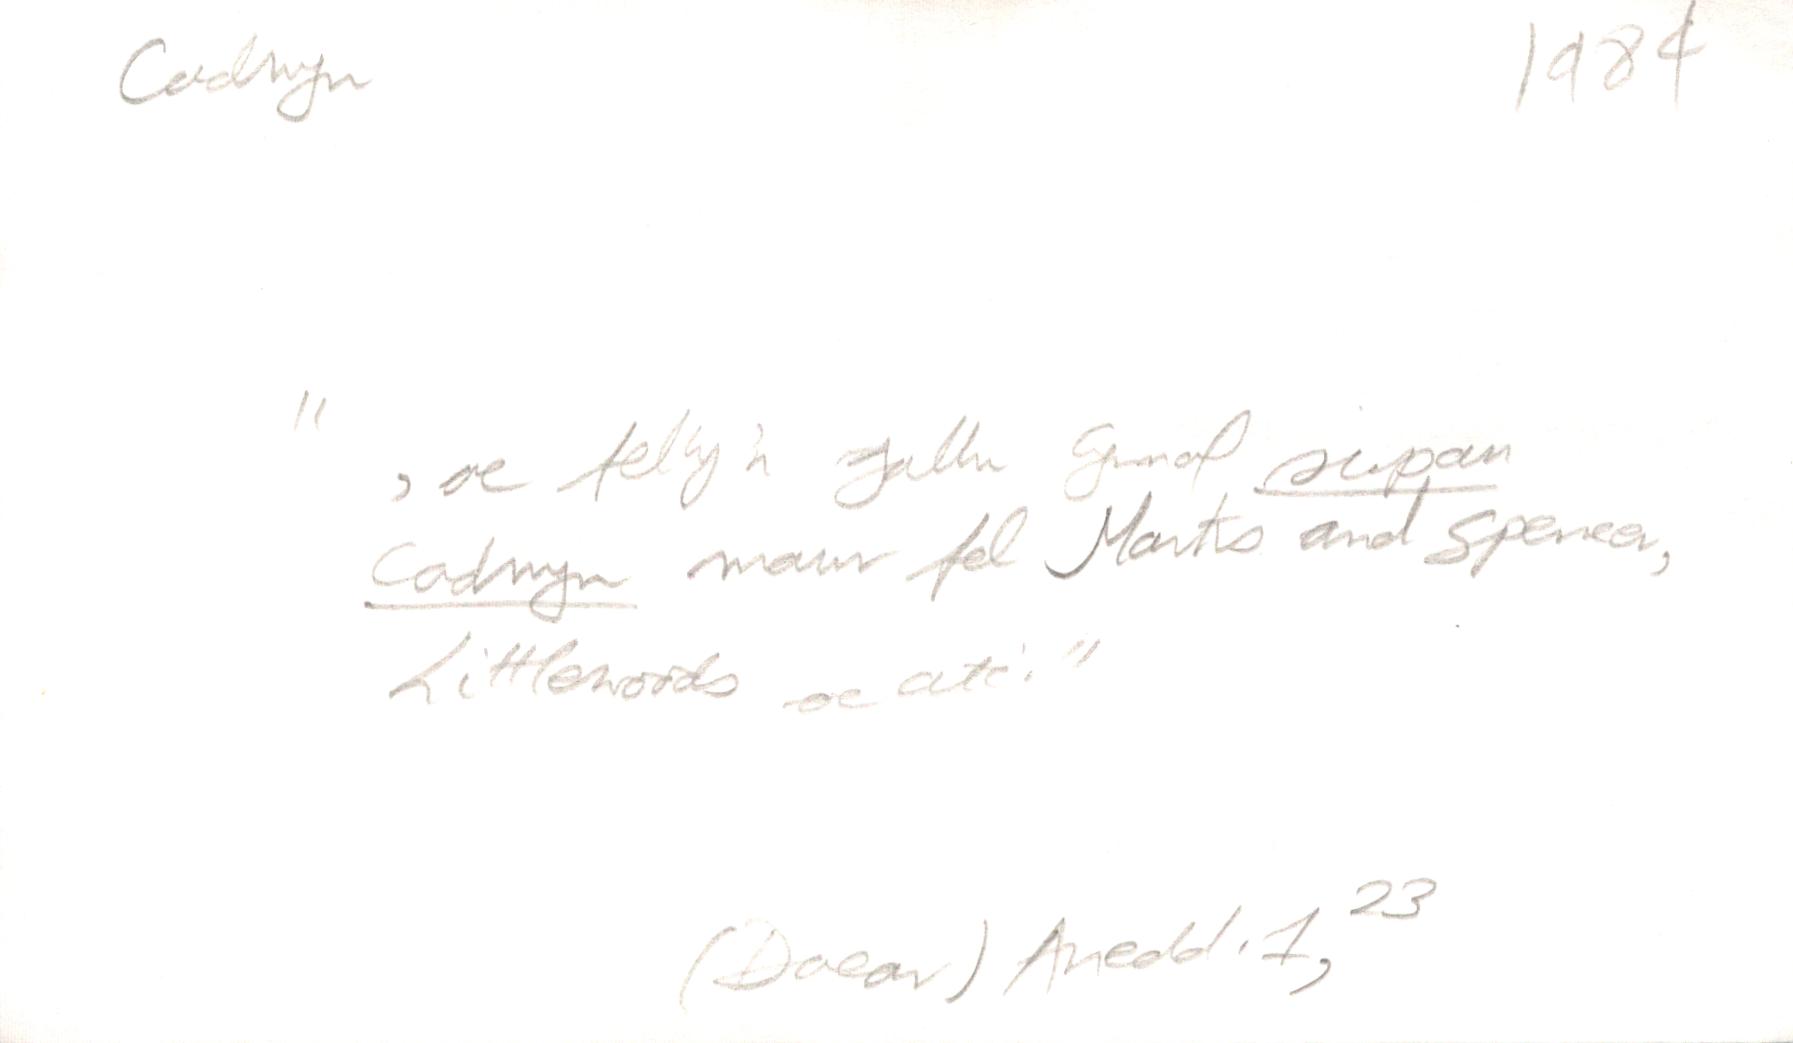 Cadwyn 1984
", ac felly'n gallu gwneud siopau
Cadwyn mawr fel Marks and Spencer,
Littlewoods ac ati."
(Daear) Anedd. 1, 23